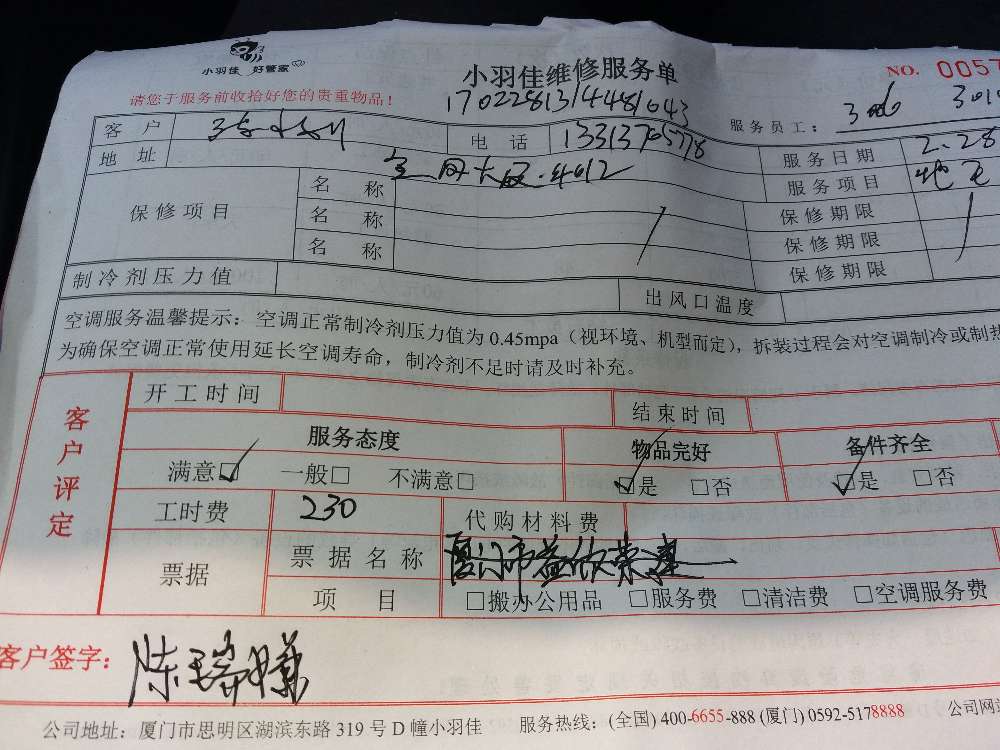 小羽佳 好管家
小羽佳维修服务单
NO. 0057
请您于服务前收拾好您的贵重物品！
17022813144481043
服务员工：
客户 电话 13313705778 服务日期 2.28
地址 大厦.4612 服务项目
保修项目 名称 / 保修期限 /
名称 保修期限
名称 保修期限
制冷剂压力值 出风口温度
空调服务温馨提示：空调正常制冷剂压力值为0.45mpa（视环境、机型而定），拆装过程会对空调制冷或制热
为确保空调正常使用延长空调寿命，制冷剂不足时请及时补充。
客户评定
开工时间 结束时间
服务态度 物品完好 备件齐全
满意☑ 一般□ 不满意□ ☑是 □否 ☑是 □否
工时费 230 代购材料费
票据 票据名称 厦门市益欣荣
项目 □搬办公用品 □服务费 □清洁费 □空调服务费
客户签字：陈瑞
公司地址：厦门市思明区湖滨东路319号D幢小羽佳 服务热线：(全国) 400-6655-888 (厦门) 0592-5178888 公司网